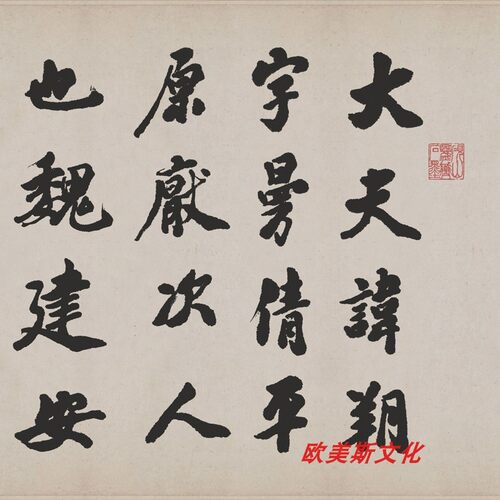 大夫諱朔
字曼倩平
原厭次人
也魏建安
欧美斯文化